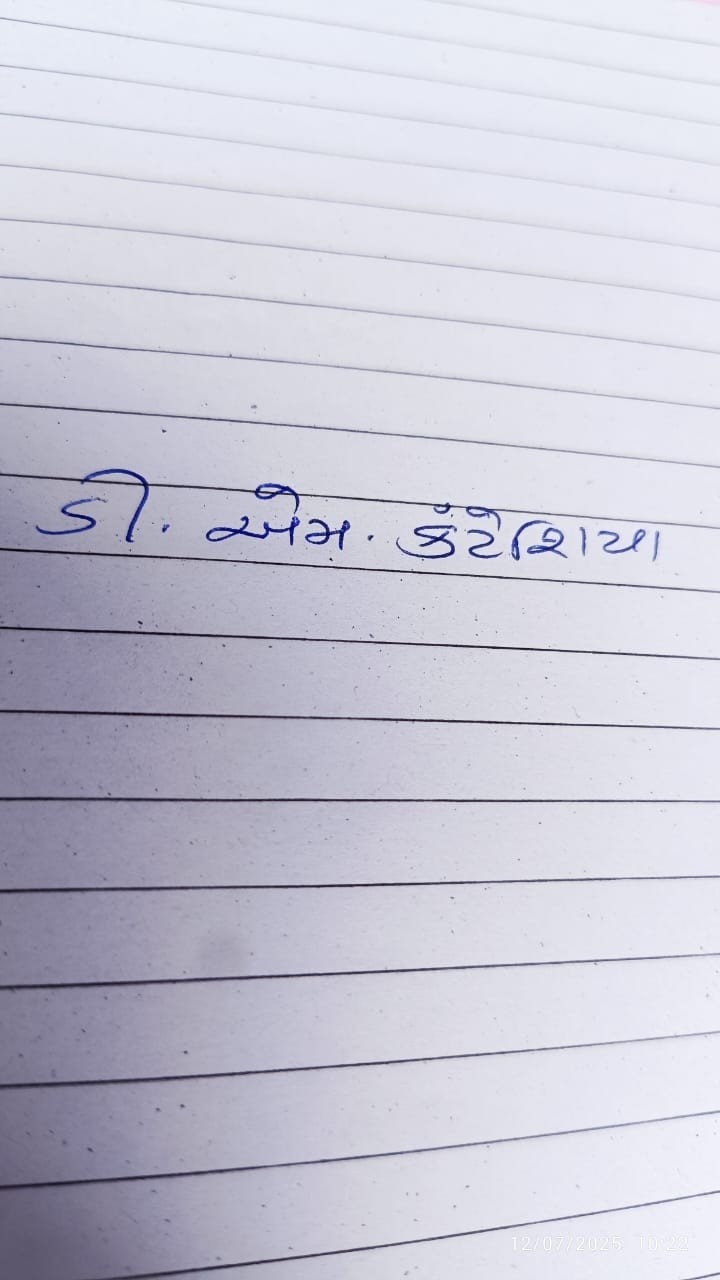 ડી. એમ. કંટેશિયા
12/07/2025 10:22